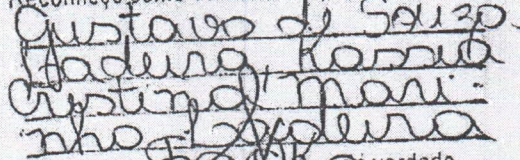 Gustavo de Souza
Madeira, Kassia
Cristina Mari-
nho
verdade